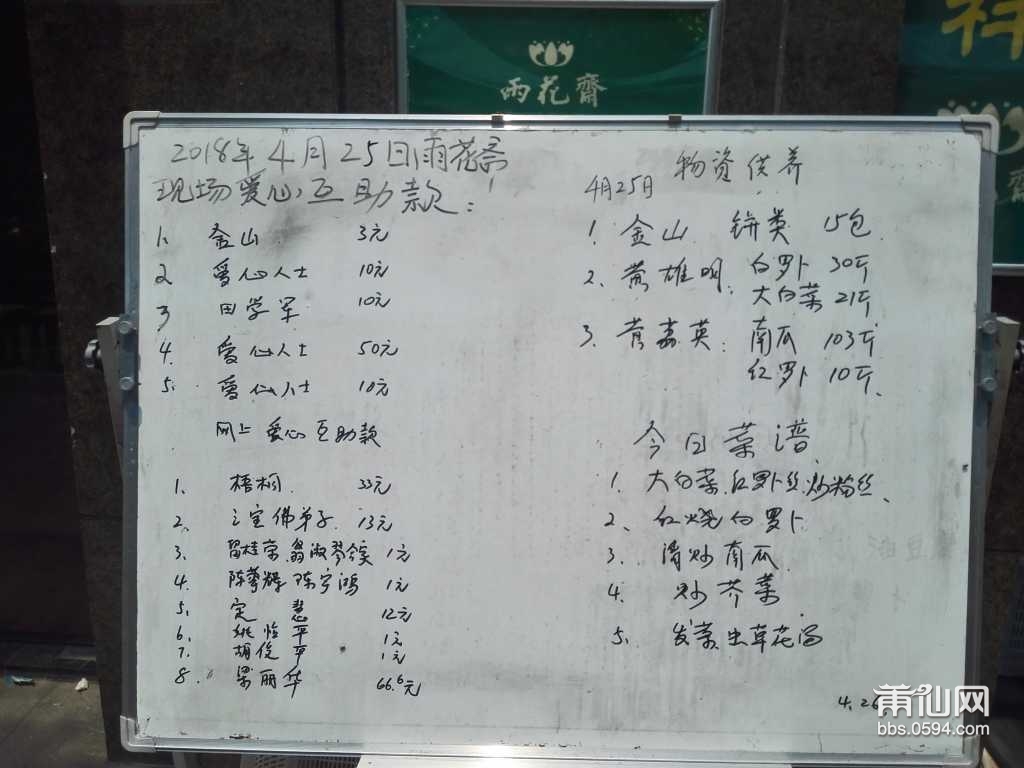 雨花齋
祥
齋
2018年4月25日雨花斋
现场爱心互助款:
1. 金山 3元
2 爱心人士 10元
3 田学军 10元
4. 爱心人士 50元
5. 爱心人士 10元
网上爱心互助款
1. 梧桐. 33元
2. 三宝佛弟子. 13元
3. 1元
4. 陈 辉 陈宇鸿 1元
5. 定慧 12元
6. 姚怡平 1元
7. 胡俊平 1元
8. 梁丽华 66.6元
物资供养
4月25日
1. 金山. 饼类 15包
2. 黄雄明. 白萝卜 30斤
大白菜 21斤
3. 黄 英: 南瓜 103斤
红萝卜 10斤
今日菜谱
1. 大白菜.红萝卜丝.炒粉丝、
2、红烧白萝卜
3. 清炒南瓜
4. 炒芥菜
5. 发菜虫草花汤
4.26
莆仙网
bbs.0594.com